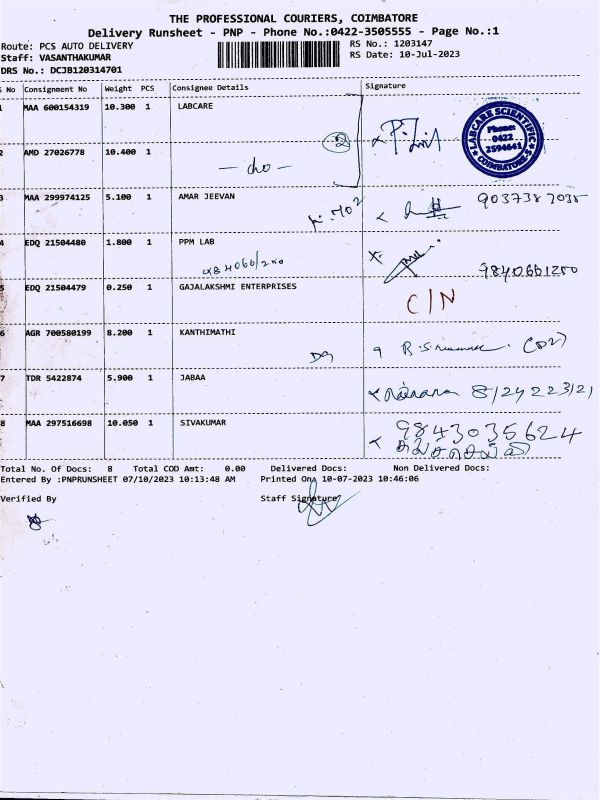 THE PROFESSIONAL COURIERS, COIMBATORE
Delivery Runsheet - PNP - Phone No.:0422-3505555 - Page No.:1
Route: PCS AUTO DELIVERY
RS No.: 1203147
Staff: VASANTHAKUMAR
RS Date: 10-Jul-2023
DRS No.: DCJB120314701
S No Consignment No Weight PCS Consignee Details Signature
1 MAA 600154319 10.300 1 LABCARE
LABCARE SCIENTIFIC
Phone:
0422
2594641
COIMBATORE-5
2
2 AMD 27026778 10.400 1
- do -
3 MAA 299974125 5.100 1 AMAR JEEVAN
9037387035
4 EDQ 21504480 1.800 1 PPM LAB
9840661200
5 EDQ 21504479 0.250 1 GAJALAKSHMI ENTERPRISES
C/N
6 AGR 700580199 8.200 1 KANTHIMATHI
7 TDR 5422874 5.900 1 JABAA
8 MAA 297516698 10.050 1 SIVAKUMAR
9843035624
Total No. Of Docs: 8 Total COD Amt: 0.00 Delivered Docs: Non Delivered Docs:
Entered By :PNPRUNSHEET 07/10/2023 10:13:48 AM Printed On: 10-07-2023 10:46:06
Verified By Staff Signature?